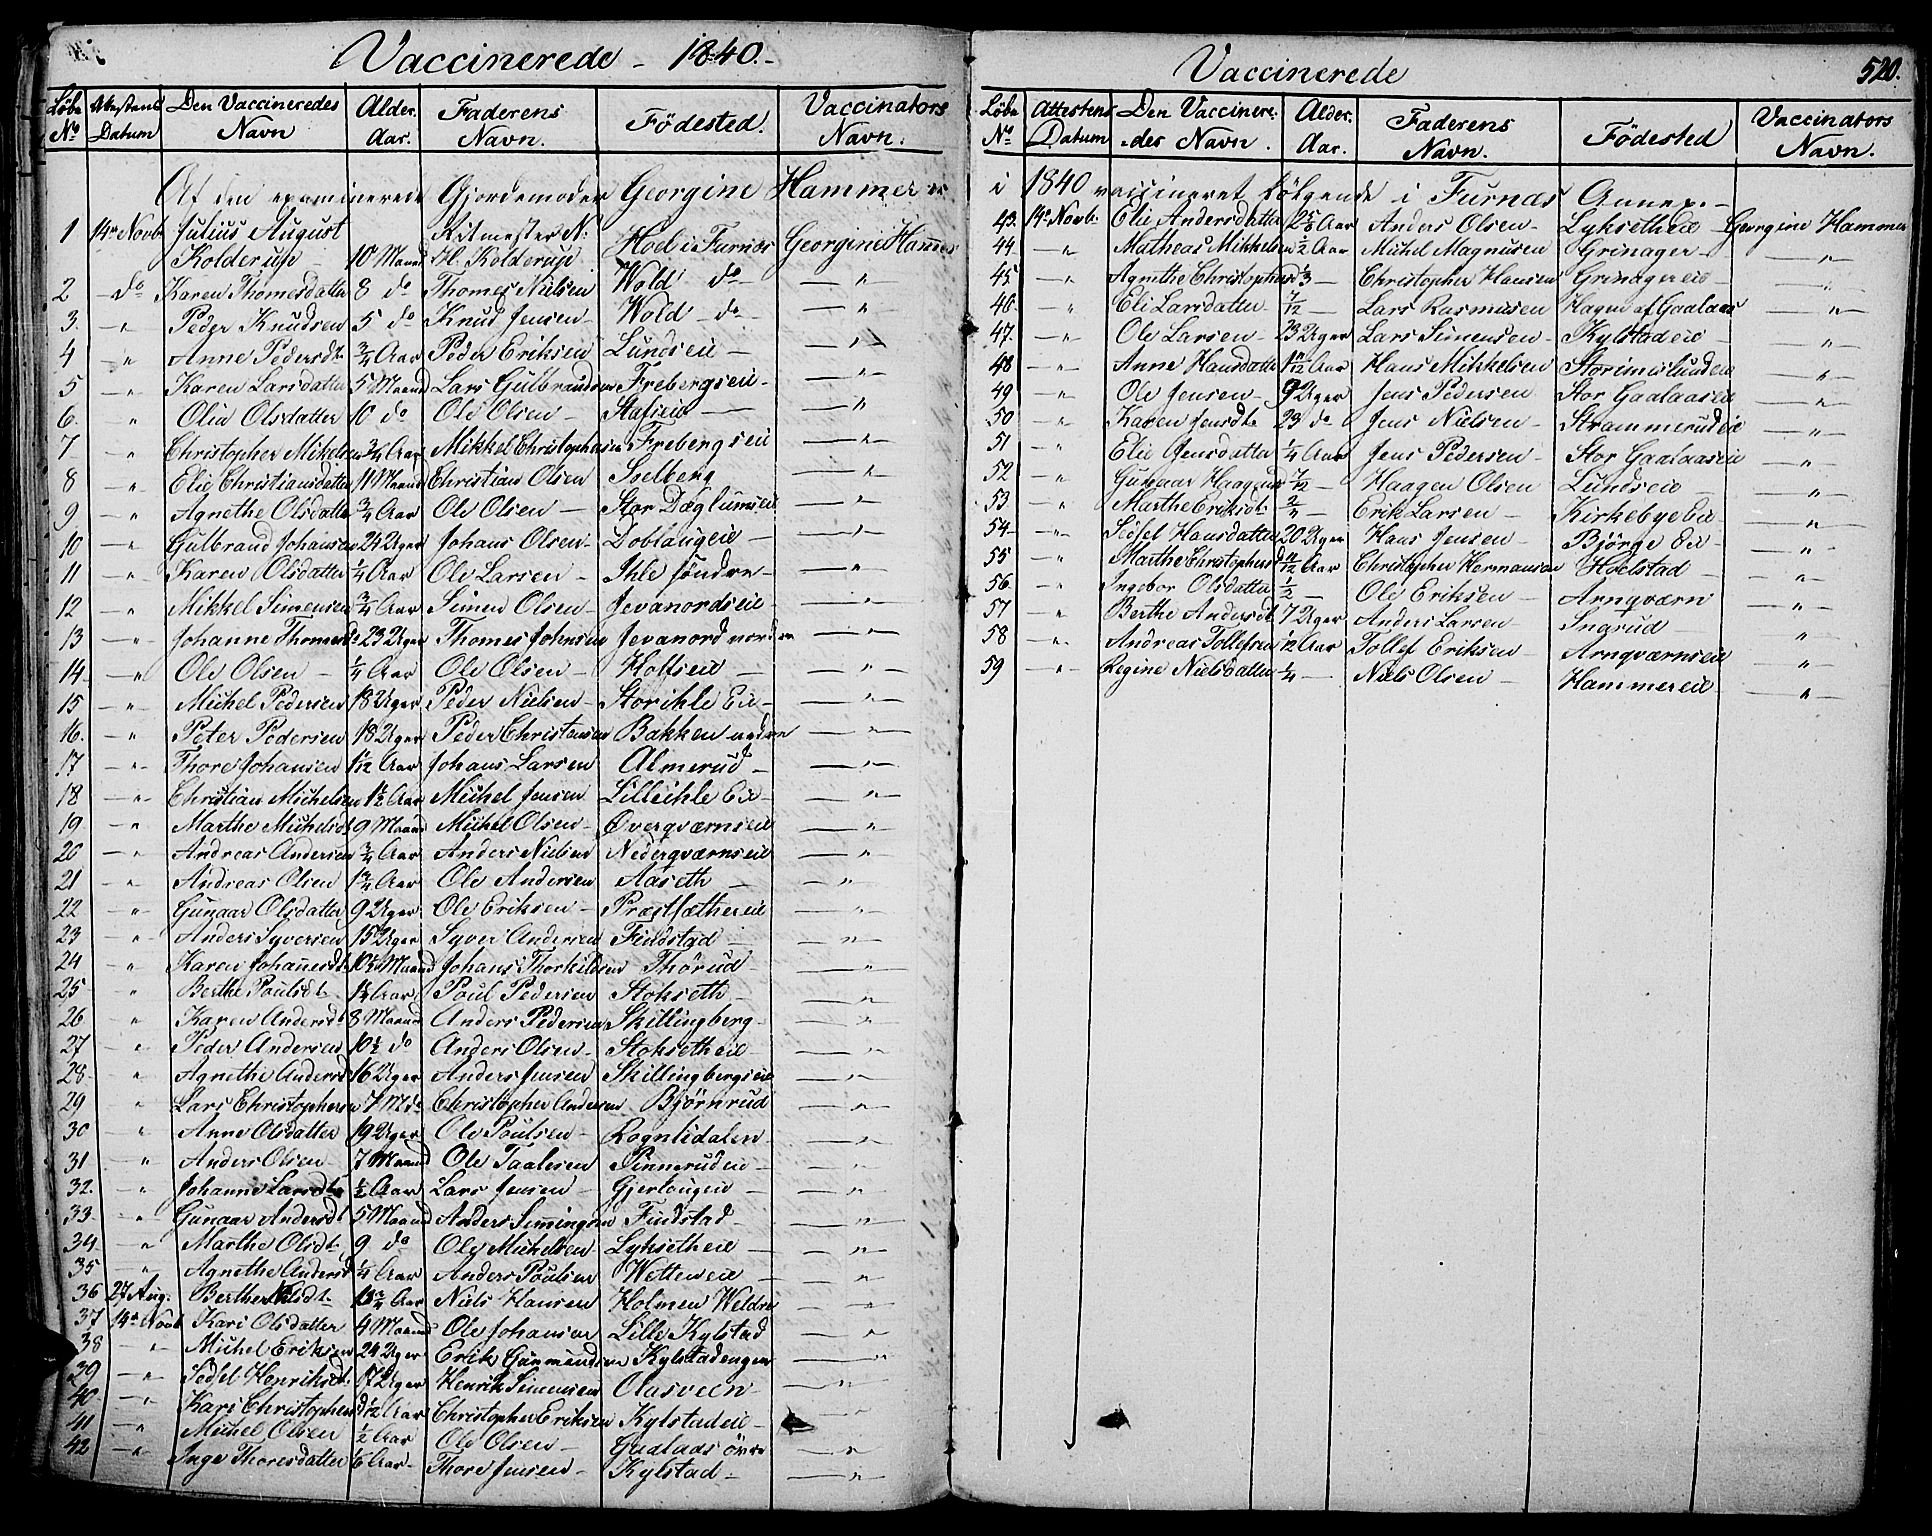 Vaccinerede - 1840.-
Løbe No | Attestens Datum | Den Vaccineredes Navn | Alder. Aar. | Faderens Navn. | Födested. | Vaccinators Navn.
Af den examinerede Gjordemoder Georgine Hammer er
1 14de Novb Julius August Ritmester N:
Kolderup - 10 Maaned H. Kolderup Hoel i Furnæs Georgine Hammer
2 - do Karen Thomesdatter 8 do Thomes Nielsen Wold do - "
3. - " Peder Knudsen 5 do Knud Jensen - Wold - do - "
4 - " Anne Pedersdt. 3/4 Aar Peder Eriksen Lundseie - - " -
5 - " Karen Larsdatter 5 Maaned Lars Gulbrandsen Frebergseie - - " -
6. " Olia Olsdatter 10 do Ole Olsen - Stafseie - - " -
7 - " Christopher Mikelsen 3/4 Aar Mikkel Christophersen Frebergseie - " -
8 - " Elie Christiansdatter 11 Maaned Christian Olsen Sselberg - " -
9 - " Agnethe Olsdatter 3/4 Aar Ole Olsen - Stor Dæglumseie - " -
10 - " Gulbrand Johansen 24 Uger Johans Olsen - Doblaugeie - - " -
11 - " Karen Olsdatter 1/4 Aar Ole Larsen - Ihle söndre - - " -
12 - " Mikkel Simensen 3/4 Aar Simen Olsen - Jevanordseie - - " -
13 - " Johanne Thomesdt 23 Uger Thomes Johnsen Jevanord nordre - " -
14. - " Ole Olsen - 1/4 Aar Ole Olsen - Holtseie - - " -
15 - " Michel Pedersen 18 Uger Peder Nielsen - Storihle Eie - - " -
16. - " Peter Pedersen 18 Uger Peder Christensen Bakken nedre - " -
17 - " Thore Johansen 1/12 Aar Johans Larsen Almerud - - " -
18 - " Christian Michelsen 1 1/2 Aar Michel Jensen Lilleihle Eie - - " -
19. - " Marthe Michelsdt 9 Maaned Michel Olsen - Øverqværnseie - " -
20 - " Andreas Andersen 3/4 Aar Anders Nielsen Nederqværnseie - " -
21 - " Andreas Olsen 1 3/4 Aar Ole Andersen Aaseth - - " -
22 - " Gunaar Olsdatter 9 Uger. Ole Eriksen - Præstsæthereie - " -
23 - " Anders Syversen 15 Uger Syver Andersen Findstad - - " -
24 " Karen Johannesdt. 10 1/2 Maaned Johans Thorkildsen Thørud - - " -
25 " Berthe Poulsdt. 1 1/4 Aar Poul Pedersen Stokseth - - " -
26 - " Karen Andersdt 8 Maaned Anders Pedersen Skillingberg - - " -
27 " Peder Andersen 10 1/2 do Anders Olsen - Stoksetheie - - " -
28. - " Agnethe Andersd 16 Uger Anders Jensen Skillingbergseie - " -
29 " Lars Christophersen 7 Mdr Christopher Andersen Bjørnrud - " -
30 " Anne Olsdatter 19 Uger Ole Poulsen - Rognlidalen - - " -
31 - " Anders Olsen - 7 Maaned Ole Taalesen Pinnerudeie - - " -
32. - " Johanne Larsdt. 1/2 Aar Lars Jensen - Gjerlaugeie - - " -
33. - " Gunaar Andersdt 5 Maaned Anders Simmingsen Findstad - - " -
34. - " Marthe Olsdt. 9 do Ole Michelsen - Lyksetheie - - " -
35 - " Agnethe Andersd 1/4 Aar Anders Poulsen Wetteneie - - " -
36 27 Aug. Berthe Nilsdt. Aar Niels Hansen Holmen Weldre - " -
37 14de Novb Kari Olsdatter 4 Maaned Ole Johansen Lille Kylstad - " -
38 - " Michel Eriksen 24 Uger Erik Gunmundsen Kylstadengen - " -
39 - " Sedsel Henriksdt. 17 Uger Henrik Simensen Olasveen - - " -
40. - " Kari Christophersd 1/12 Aar Christopher Eriksen Kylstadeie - - " -
41 - " Michel Olsen 1/2 Aar Ole Olsen - Gaalaas övre - " -
42 - " Inge Thoresdatter 1/6 Aar - Thore Jensen - Kylstad - - " -
Vaccinerede 520.
Løbe No | Attestens Datum | Den Vaccineredes Navn. | Alder. Aar. | Faderens Navn. | Födested | Vaccinators Navn.
i 1840 vaccineret følgende i Furnæs Annex. -
43. 14de Novb. Elie Andersdatter 2 5/8 Aar Anders Olsen - Lyksetheie - Georgine Hammer
44 - " Matheas Mikkelsen 1/2 Aar Michel Magnusen Grinager - - " -
45. - " Agnethe Christophersd 1/3 - Christopher Hansen Grinagereie - " -
46. " Eli Larsdatter - 7/12 - Lars Rasmusen Hagen af Gaalaas - " -
47. - " Ole Larsen - 23 Uger Lars Simensen - Kylstadeie - - " -
48 - " Anne Hansdatter 1/12 Aar Hans Mikkelsen Storimislundeie - " -
49 - " Ole Jensen - 9 Uger Jens Pedersen Stor Gaalaaseie - " -
50 - " Karen Jensdt. 23 do Jens Nielsen - Strammerudeie - " -
51 " Elie Jensdatter 1/4 Aar Jens Pedersen - Stor Gaalaaseie - " -
52 " Gunaar Haagensd 7/12 - Haagen Olsen Lundseie - - " -
53 - " Marthe Eriksdt. 2/4 - Erik Larsen - Kirkebye Eie - " -
54 - " Sedsel Hansdatter 20 Uger Hans Jensen - Björge Eie - - " -
55 - " Marthe Christophersd 11/12 Aar Christopher Hermansen Hoelstad - - " -
56. - " Ingebor Olsdatter 1/2 - Ole Eriksen - Arnqværn - " -
57 " Berthe Andersdt 7 Uger Anders Larsen - Snarud - - " -
58 " Andreas Tollefsen 1/12 Aar Tollef Eriksen - Arnqværnseie - " -
59 - " Regine Nielsdatter 1/4 - Niels Olsen - Hammereie - - " -